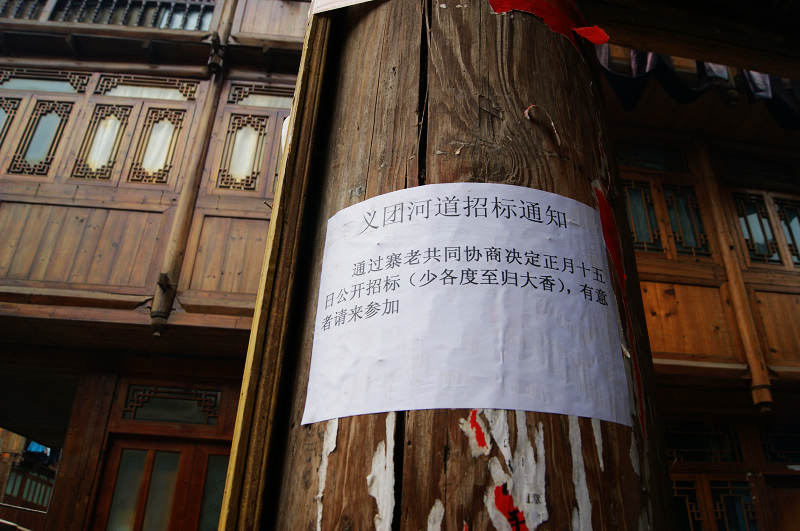 义团河道招标通知
通过寨老共同协商决定正月十五
日公开招标（少各度至归大香），有意
者请来参加